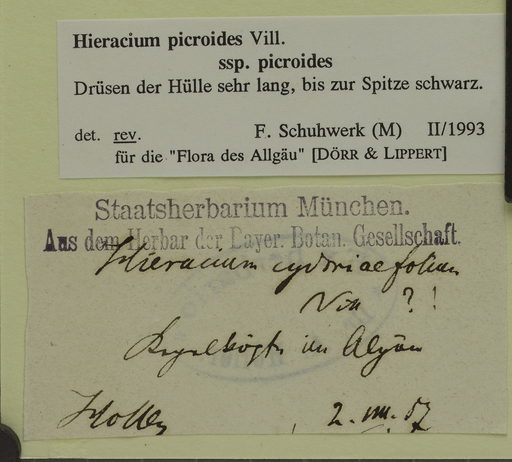 Hieracium picroides Vill.
ssp. picroides
Drüsen der Hülle sehr lang, bis zur Spitze schwarz.
det. rev. F. Schuhwerk (M) II/1993
für die "Flora des Allgäu" [DÖRR & LIPPERT]
Staatsherbarium München.
Aus dem Herbar der Bayer. Botan. Gesellschaft.
Hieracium cydoniaefolium
Vill ?!
im Algäu
2. VIII. 57